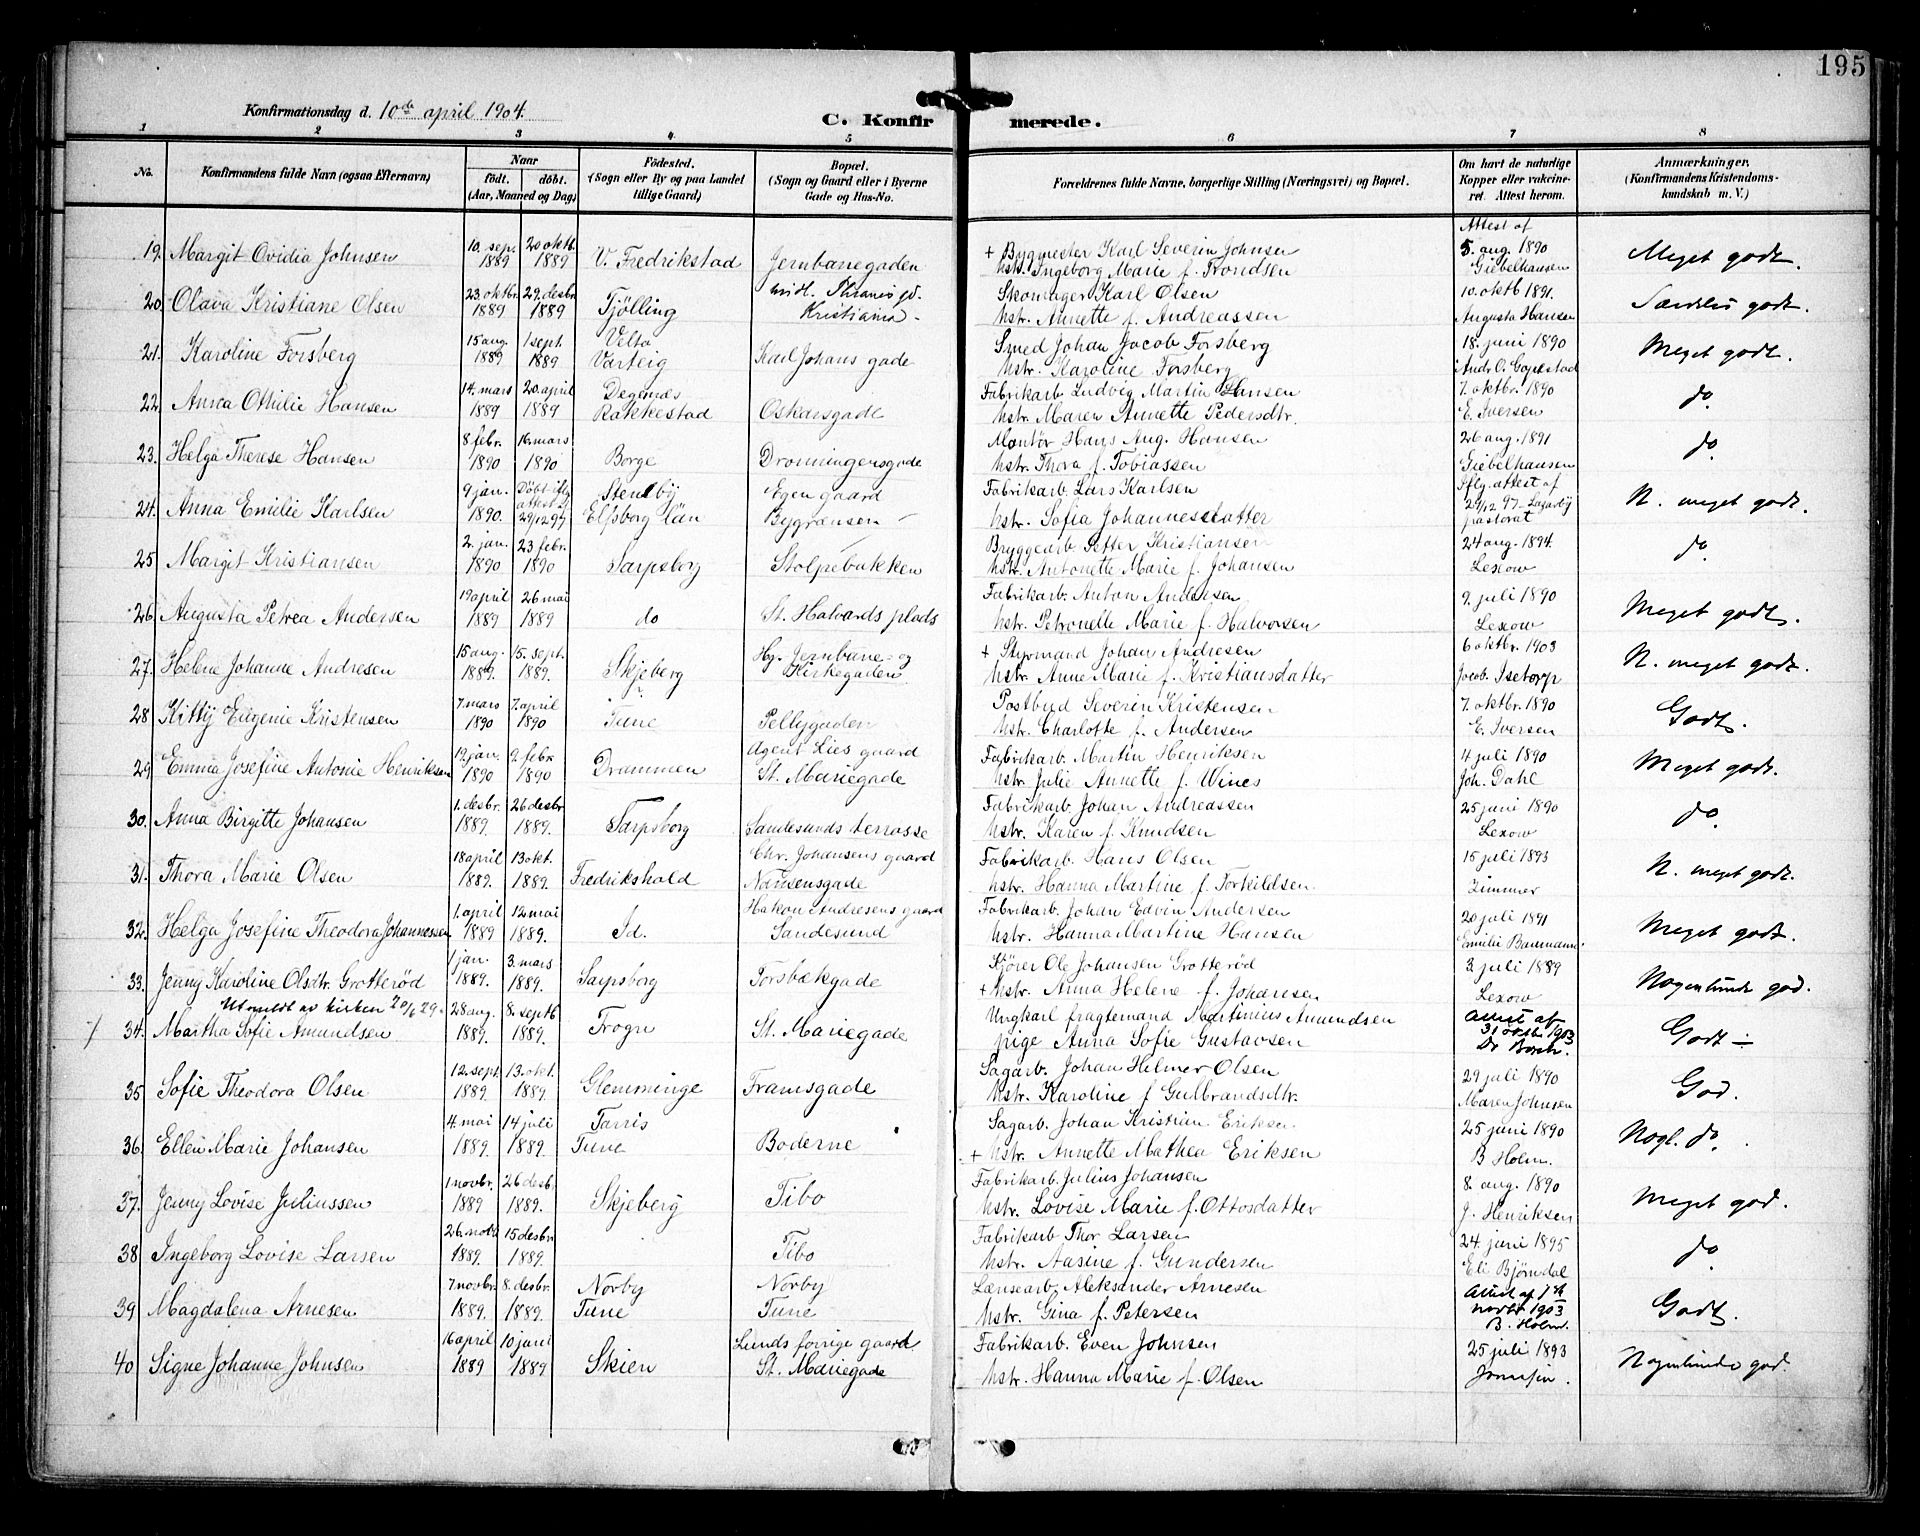 195
Konfirmationsdag d. 10de april 1904.
C. Konfirmerede.
1 2 3 4 5 6 7 8
No.
Konfirmandens fulde Navn (ogsaa Efternavn)
Naar
födt. döbt.
(Aar, Maaned og Dag)
Födested.
(Sogn eller By og paa Landet
tillige Gaard)
Bopæl.
(Sogn og Gaard eller i Byerne
Gade og Hus-No.
Forældrenes fulde Navne, borgerlige Stilling (Næringsvei) og Bopæl.
Om havt de naturlige
Kopper eller vakcine-
ret. Attest herom.
Anmærkninger.
(Konfirmandens Kristendoms-
kundskab m. V.)
19. Margit Ovidia Johnsen 10. sept. 1889 20 oktb. 1889 V. Fredrikstad Jernbanegaden
+ Bygmester Karl Severin Johnsen
hstr. Ingeborg Marie f. Trondsen
Attest af 5. aug. 1890 Giebelhausen
Meget godt.
20. Olava Kristiane Olsen 23. oktbr. 1889 29. desbr. 1889 Tjölling Kristiania
Skomager Karl Olsen
hstr. Annette f. Andreassen
10. oktb 1891. Augusta Hansen
Særdeles godt.
21. Karoline Forsberg 15 aug. 1889 1 sept. 1889 Velta Varteig Karl Johans gade
Smed Johan Jacob Forsberg
hstr. Karoline Forsberg
18. juni 1890
Meget godt.
22. Anna Othilie Hansen 14. mars 1889 20. april 1889 Degernes Rakkestad Oskarsgade
Fabrikarb. Ludvig Martin Hansen
hstr. Maren Annette Pedersdtr.
7. oktbr. 1890 E. Iversen
do
23. Helga Therese Hansen 8 febr. 1890 16 mars 1890 Borge Dronningensgade
Montör Hans Aug. Hansen
hstr. Thora f. Tobiassen
26 aug. 1891 Giebelhausen
do
24. Anna Emilie Karlsen 9 jan. 1890. Döbt iflg. attest af 29/12 97 Stenlby Elfsborg län Egen gaard Bygrænsen
Fabrikarb. Lars Karlsen
hstr. Sofia Johannesdatter
Iflg. attest af 29/12 97 pastorat
N. meget godt.
25 Margit Kristiansen 2. jan. 1890 23 febr. 1890 Sarpsborg Stolpebakken
Bryggearb. Petter Kristiansen
hstr. Antonette Marie f. Johansen
24 aug. 1894. Lexow
do
26 Augusta Petrea Andersen 19 april 1889 26 mai 1889 do St. Halvards plads
Fabrikarb. Anton Andersen
hstr. Petronelle Marie f. Halvorsen
9. juli 1890 Lexow
Meget godt.
27. Helene Johanne Andresen 15 aug. 1889. 15. sept. 1889. Skjeberg Hj. Jernbane- og Kirkegaden
+ Styrmand Johan Andresen
hstr. Anne Marie f. Kristiansdatter
6 oktbr. 1903 Jacob Isetorp
N. meget godt.
28 Kitty Eugenie Kristensen 7. mars 1890 7. april 1890 Tune Pellygaden
Postbud Severin Kristensen
hstr. Charlotte f. Andersen
7. oktbr. 1890 E. Iversen
Godt.
29 Emma Josefine Antonie Henriksen 19. jan. 1890 9. febr 1890 Drammen Agent Lies gaard St. Mariegade
Fabrikarb. Martin Henriksen
hstr. Julie Annette f. Wines
4 juli 1890 Joh. Dahl
Meget godt.
30. Anna Birgitte Johansen 1. desbr. 1889. 26 desbr 1889. Sarpsborg Sandesunds terrasse
Fabrikarb. Johan Andreassen
hstr. Karen f. Knudsen
25 juni 1890 Lexow
do
31. Thora Marie Olsen 18 april 1889. 13 okt. 1889. Fredrikshald Chr. Johansens gaard Nansensgade
Fabrikarb. Hans Olsen
hstr. Hanna Martine f. Torkildsen
15 juli 1893 Zimmer
N. meget godt.
32. Helga Josefine Theodora Johannessen 1. april 1889 12 mai 1889. Id. Hakon Andresens gaard Sandesund
Fabrikarb. Johan Edvin Andersen
hstr. Hanna Martine Hansen
20 juli 1891 Emilie
Meget godt.
33. Jenny Karoline Olsdtr. Grotteröd 1 jan. 1889. 3. mars 1889. Sarpsborg Torsbækgade
Kjörer Ole Johansen Grotteröd
+ hstr. Anna Helene f. Johansen
3. juli 1889 Lexow
Nogenlunde god.
Utmeldt av kirken 20/6 29.
34. Martha Sofie Amundsen 28 aug. 1889. 8. septb 1889. Trögn St. Mariegade
Ungkarl fragtemand Martinius Amundsen
pige Anna Sofie Gustavsen
Attest af 31 oktbr 1903
Godt
35 Sofie Theodora Olsen 12. sept. 1889 13. okt. 1889. Glemminge Framsgade
Sagarb. Johan Helmer Olsen
hstr. Karoline f Gulbrandsdtr.
29 juli 1890 Maren Johnsen
God.
36. Ellen Marie Johansen 4. mai 1889 14 juli 1889. Tarris Tune Boderne
Sagarb. Johan Kristian Eriksen.
+ hstr. Annette Mathea Eriksen
25 juni 1890 B Holm.
Nogl. do.
37. Jenny Lovise Juliussen 1 novbr. 1889 26 desb. 1889. Skjeberg Tibo
Fabrikarb. Julius Johansen
hstr. Lovise Marie f. Ottosdatter
8. aug. 1890 J. Henriksen
Meget god.
38 Ingeborg Lovise Larsen 26. novb 1889. 15 desbr 1889. Tibo
Fabrikarb Thor Larsen
hstr. Aasine f. Gundersen
24. juni 1895 Eli Björndal
do
39 Magdalena Arnesen 7. novbr. 1889. 8. desbr. 1889. Norby Tune Norby Tune
Lænsearb. Aleksander Arnesen
hstr. Gina f. Petersen
Attest af novbr 1903 B. Holm.
Godt.
40 Signe Johanne Johnsen 16 april 1889 10 juni 1889 Skien Lunds forrige gaard St. Mariegade
Fabrikarb. Even Johnsen
hstr. Hanna Marie f. Olsen
25 juli 1893
Nogenlunde god.